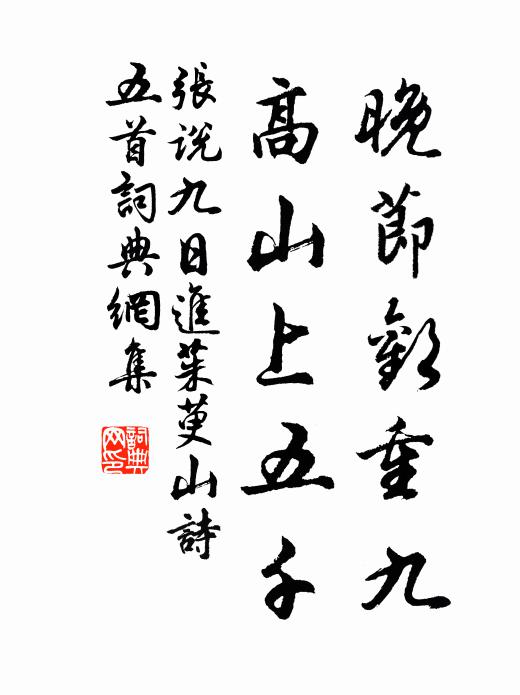 晚節歡重九
高山上五千
張說九日進茱萸山詩
五首詞典網集
詞典網印